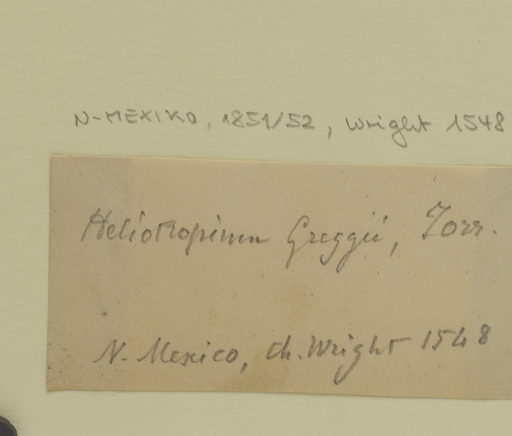 N-MEXIKO, 1851/52, Wright 1548
Heliotropium Greggii, Torr.
N. Mexico, Ch. Wright 1548